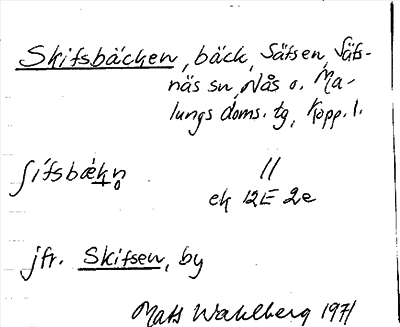 Skifsbäcken, bäck, Säfsen, Säfs-
näs sn, Nås o. Ma-
lungs doms. tg, Kopp. l.
ʃífsbæ̀kn̥ //
ek 12E 2e
jfr. Skifsen, by
Mats Wahlberg 1971